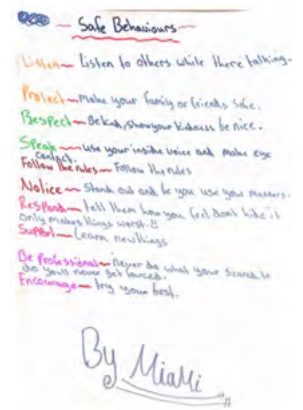 Safe Behaviours
Listen - Listen to others while there talking.
Protect - make your family or friends safe.
Respect - Be kind, show your kindness be nice.
Speak - use your inside voice and make eye
contact.
Follow the rules - Follow the rules
Notice - Stand out and be you use your manners.
Respond - tell them how you feel dont hide it
only makes things worst.
Support - Learn new things
Be Professional - never do what your scared to
do you's never get forced.
Encourage - try your best.
By MiaMi